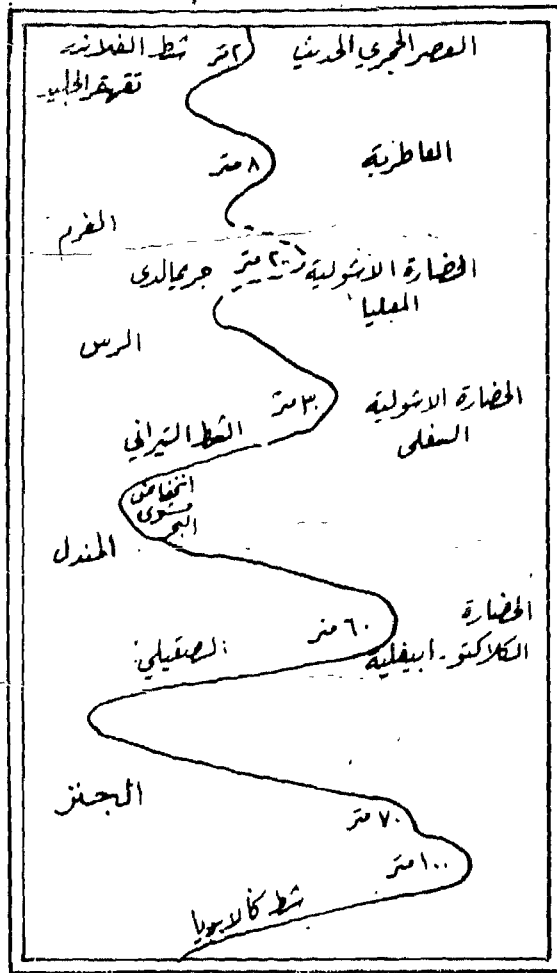 العصر الحجري الحديث
٢ متر
شط الفلاندر
تقهقر الجليد
العاطرية
٨ متر
الفرم
الحضارة الاشولية
العليا
متر
جريمالدى
الرس
الحضارة الاشولية
السفلى
٣٠ متر
الشط التيراني
انخفاض
مستوى
البحر
المندل
الحضارة
الكلاكتو - ابيفلية
٦٠ متر
الصقيلي
الجنز
٧٠ متر
١٠٠ متر
شط كالابريا